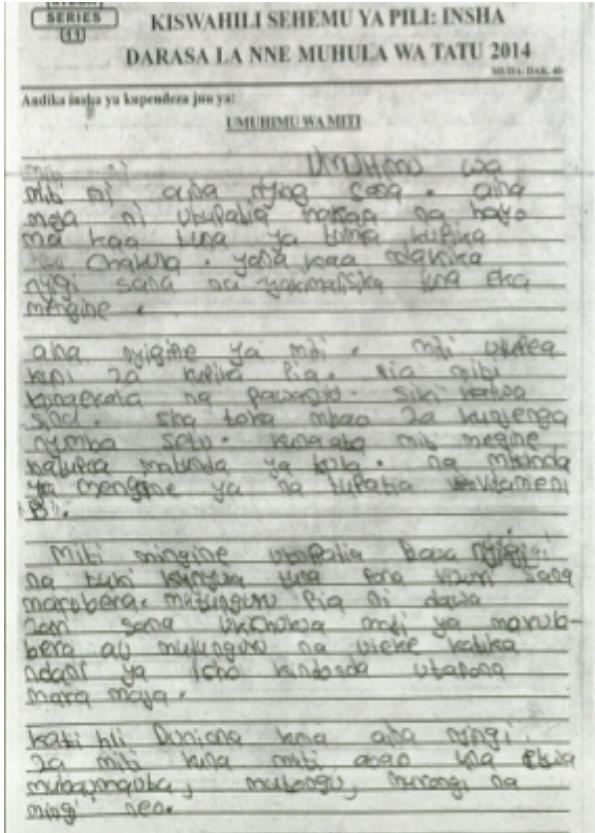 SERIES
11
KISWAHILI SEHEMU YA PILI: INSHA
DARASA LA NNE MUHULA WA TATU 2014
MUDA: DAK. 40
Andika insha ya kupendeza juu ya:
UMUHIMU WA MITI
UMUHIMU wa
miti ni aina nying sana. aina
moja ni utupatia makaa na hayo
ma kaa tuna ya tumia kupika
chakula. yana kaa ndakika
nyigi sana na yakimalisika una eka
mengine.
aina nyigine ya miti. miti utupea
kuni za kupika pia. pia miti
na siki katwa
sha toka mbao za kunjenga
nymba setu. kuna aba miti megine
matunda ya kula. na mtunda
ya mengine ya na tupatia vitameni
"B".
Miti mingine utupatia dawa
na tuki kunywa tuna pona vizuri sana
marubera. mutunguru pia ni dawa
zori sana ukichukuwa miti ya marub-
bera au mutunguru na uteke katika
ndani ya icho kindonda utapona
mara moja.
kati hii Duniana kuna aina nyingi
za miti kuna miti abao una ekwa
mutongu, murongi na
mingi neo.